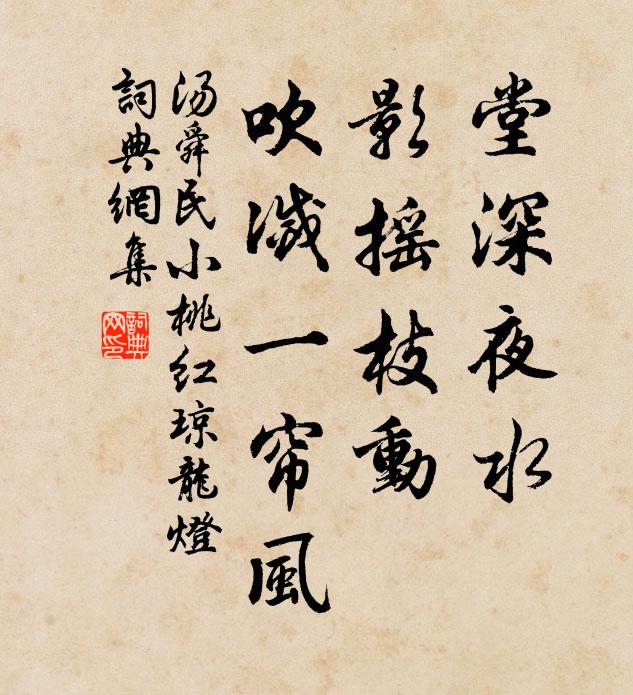 堂深夜水
影摇枝動
吹滅一帘風
湯舜民小桃红琼龍燈
詞典網集
詞典网印